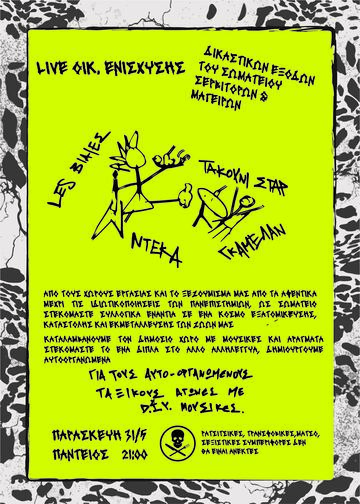 LIVE ΟΙΚ. ΕΝΙΣΧΥΣΗΣ
ΔΙΚΑΣΤΙΚΩΝ ΕΞΟΔΩΝ
ΤΟΥ ΣΩΜΑΤΕΙΟΥ
ΣΕΡΒΙΤΟΡΩΝ &
ΜΑΓΕΙΡΩΝ
LES ΒΙΛΙΕΣ
ΤΑΚΟΥΝΙ ΣΤΑΡ
ΝΤΕΚΑ
ΓΚΑΜΕΛΑΝ
ΑΠΟ ΤΟΥΣ ΧΩΡΟΥΣ ΕΡΓΑΣΙΑΣ ΚΑΙ ΤΟ ΞΕΖΟΥΜΙΣΜΑ ΜΑΣ ΑΠΟ ΤΑ ΑΦΕΝΤΙΚΑ
ΜΕΧΡΙ ΤΙΣ ΙΔΙΩΤΙΚΟΠΟΙΗΣΕΙΣ ΤΩΝ ΠΑΝΕΠΙΣΤΗΜΙΩΝ, ΩΣ ΣΩΜΑΤΕΙΟ
ΣΤΕΚΟΜΑΣΤΕ ΣΥΛΛΟΓΙΚΑ ΕΝΑΝΤΙΑ ΣΕ ΕΝΑ ΚΟΣΜΟ ΕΞΑΤΟΜΙΚΕΥΣΗΣ,
ΚΑΤΑΣΤΟΛΗΣ ΚΑΙ ΕΚΜΕΤΑΛΛΕΥΣΗΣ ΤΩΝ ΖΩΩΝ ΜΑΣ
ΚΑΤΑΛΑΜΒΑΝΟΥΜΕ ΤΟΝ ΔΗΜΟΣΙΟ ΧΩΡΟ ΜΕ ΜΟΥΣΙΚΕΣ ΚΑΙ ΑΡΑΓΜΑΤΑ
ΣΤΕΚΟΜΑΣΤΕ ΤΟ ΕΝΑ ΔΙΠΛΑ ΣΤΟ ΑΛΛΟ ΑΛΛΗΛΕΓΓΥΑ, ΔΗΜΙΟΥΡΓΟΥΜΕ
ΑΥΤΟΟΡΓΑΝΩΜΕΝΑ
ΓΙΑ ΤΟΥΣ ΑΥΤΟ-ΟΡΓΑΝΩΜΕΝΟΥΣ
ΤΑΞΙΚΟΥΣ ΑΓΩΝΕΣ ΜΕ
D.I.Y. ΜΟΥΣΙΚΕΣ.
ΠΑΡΑΣΚΕΥΗ 31/5
ΠΑΝΤΕΙΟΣ 21:00
ΡΑΤΣΙΣΤΙΚΕΣ, ΤΡΑΝΣΦΟΒΙΚΕΣ, ΜΑΤΣΟ,
ΣΕΞΙΣΤΙΚΕΣ ΣΥΜΠΕΡΙΦΟΡΕΣ ΔΕΝ
ΘΑ ΕΙΝΑΙ ΑΝΕΚΤΕΣ